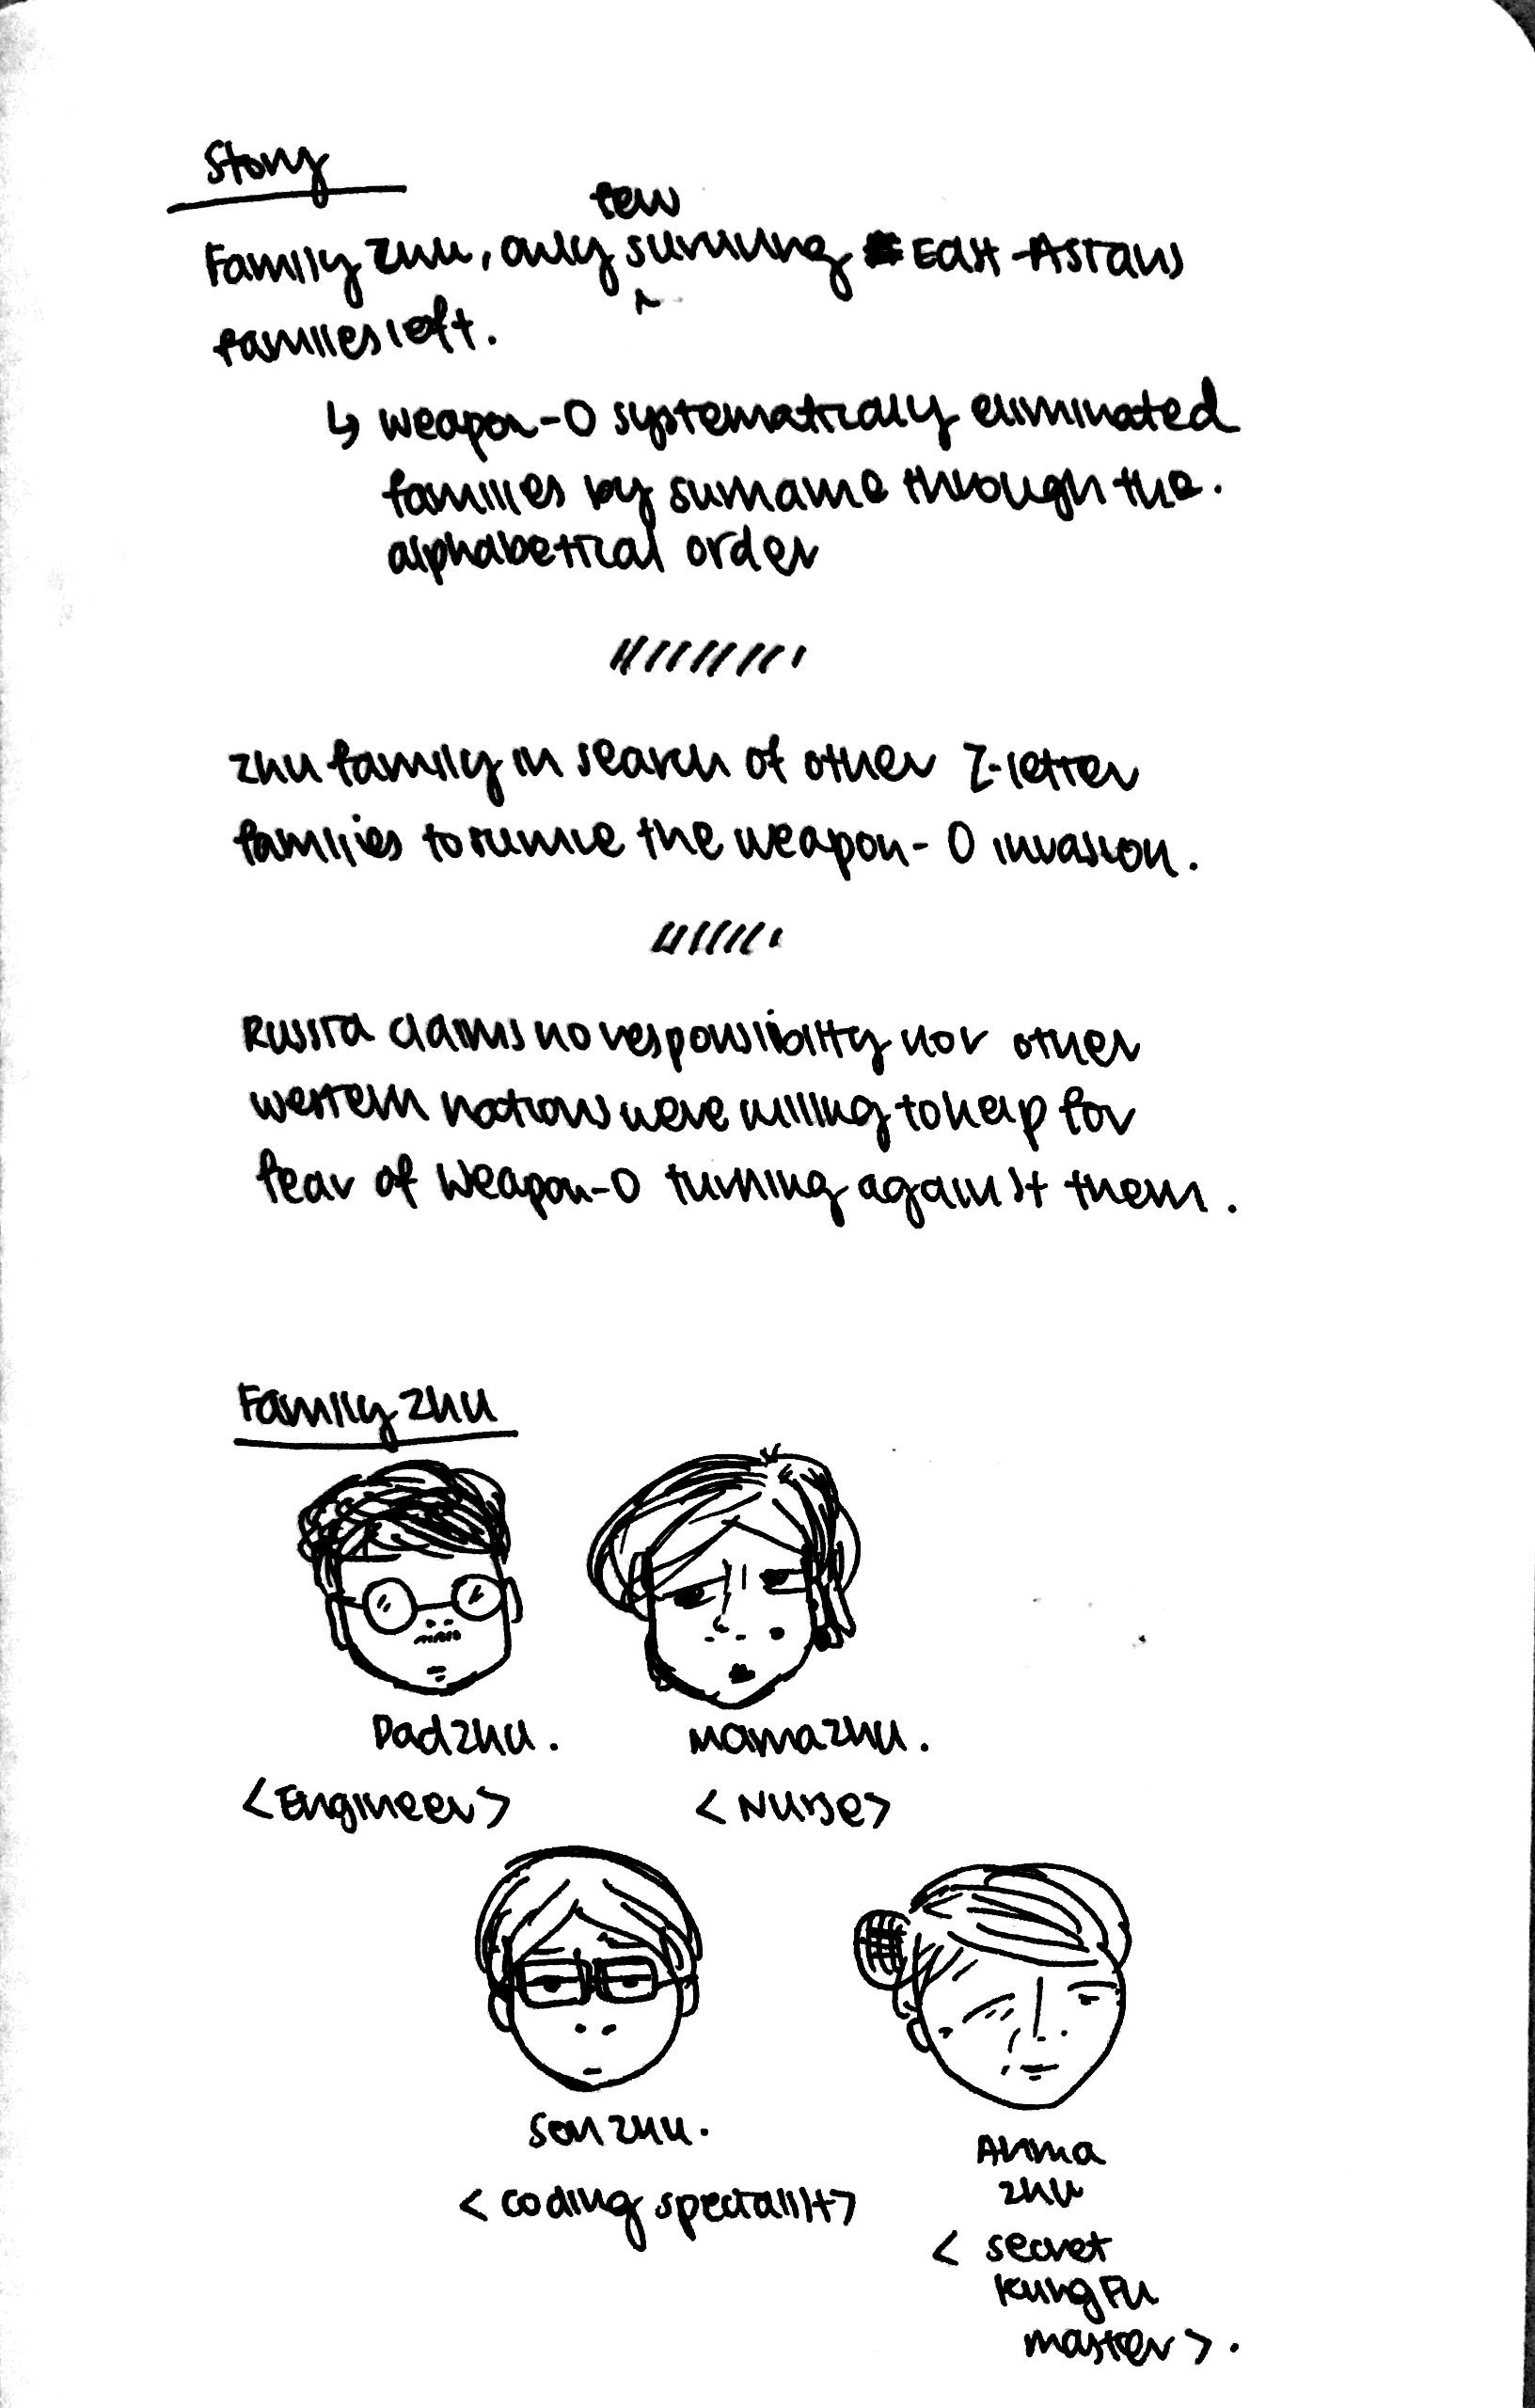 Story
few
Family Zhu, only surviving East-Asians
families left.
↳ weapon-O systematically eliminated
families by surname through the.
alphabetical order
Zhu family in search of other Z-letter
families to survive the weapon-O invasion.
Russia claims no responsibility nor other
western nations were willing to help for
fear of Weapon-O turning against them.
Family Zhu
Dad Zhu.
Mama Zhu.
<Engineer>
<Nurse>
Son Zhu.
<coding specialist>
Ahma
Zhu
<secret
Kung Fu
master>.